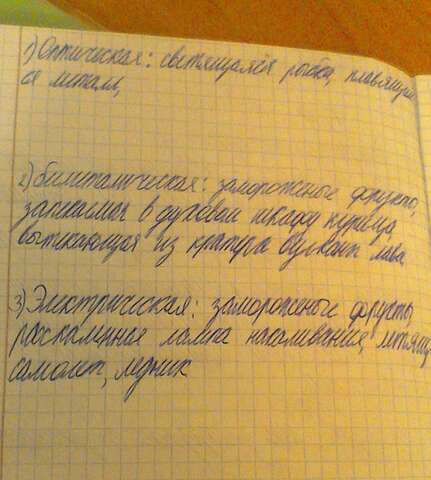 1) Оптическая: светящаяся рыбка, плавящий
ся металл,
2) Биметалическая: замороженые фрукты,
запекаемая в духовом шкафу курица
вытекающая из кратера вулкана лава.
3) Электрическая: замороженые фрукты,
раскаленная лампа накаливания, летящий
самолет, ледник